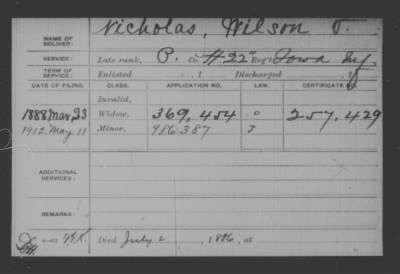 NAME OF SOLDIER: Nicholas, Wilson T.
SERVICE: Late rank, P. Co. H 22" Reg't Iowa Inf.
TERM OF SERVICE: Enlisted , 1 Discharged , 1
DATE OF FILING. CLASS. APPLICATION NO. LAW. CERTIFICATE NO.
Invalid,
1888 Mar. 23 Widow, 369,454 O 257,429
1912 May 11 Minor, 986387 J
ADDITIONAL SERVICES:
REMARKS:
Died July 2 , 1886, at